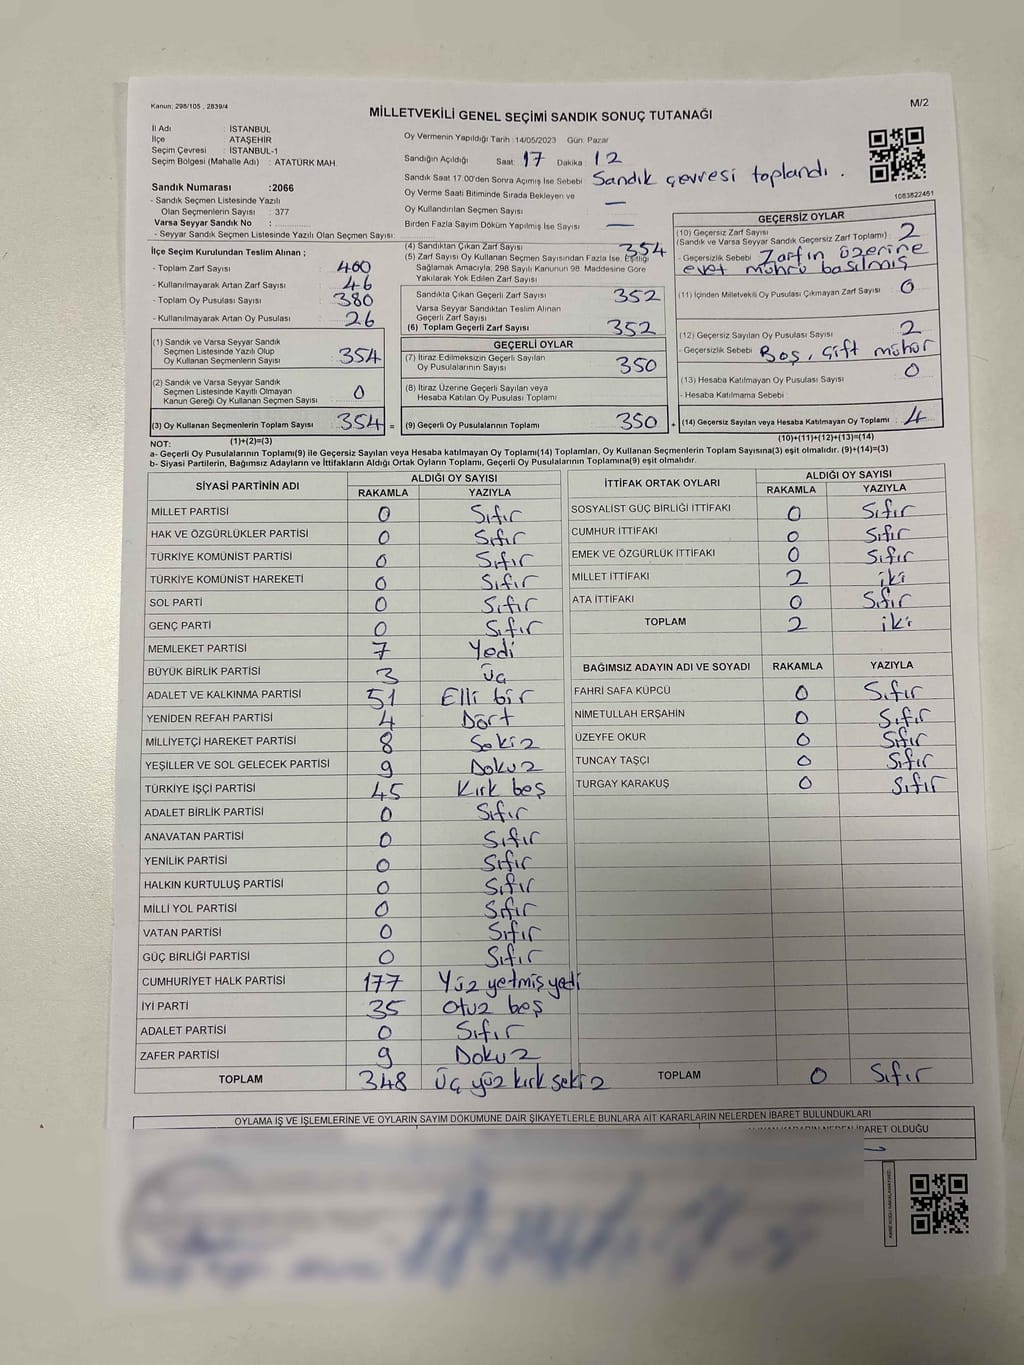 Kanun: 298/105 , 2839/4
M/2
MİLLETVEKİLİ GENEL SEÇİMİ SANDIK SONUÇ TUTANAĞI
İl Adı : İSTANBUL
İlçe : ATAŞEHİR
Seçim Çevresi : İSTANBUL-1
Seçim Bölgesi (Mahalle Adı) : ATATÜRK MAH.
Sandık Numarası :2066
- Sandık Seçmen Listesinde Yazılı
Olan Seçmenlerin Sayısı : 377
Varsa Seyyar Sandık No :
- Seyyar Sandık Seçmen Listesinde Yazılı Olan Seçmen Sayısı:
Oy Vermenin Yapıldığı Tarih :14/05/2023 Gün: Pazar
Sandığın Açıldığı Saat: 17 Dakika: 12
Sandık Saat 17.00'den Sonra Açımış İse Sebebi Sandık çevresi toplandı.
Oy Verme Saati Bitiminde Sırada Bekleyen ve
Oy Kullandırılan Seçmen Sayısı : —
Birden Fazla Sayım Döküm Yapılmış İse Sayısı : —
1083822461
İlçe Seçim Kurulundan Teslim Alınan ;
- Toplam Zarf Sayısı : 400
- Kullanılmayarak Artan Zarf Sayısı : 46
- Toplam Oy Pusulası Sayısı : 380
- Kullanılmayarak Artan Oy Pusulası : 26
(1) Sandık ve Varsa Seyyar Sandık
Seçmen Listesinde Yazılı Olup
Oy Kullanan Seçmenlerin Sayısı : 354
(2) Sandık ve Varsa Seyyar Sandık
Seçmen Listesinde Kayıtlı Olmayan
Kanun Gereği Oy Kullanan Seçmen Sayısı : 0
(3) Oy Kullanan Seçmenlerin Toplam Sayısı : 354 =
(1)+(2)=(3)
(4) Sandıktan Çıkan Zarf Sayısı : 354
(5) Zarf Sayısı Oy Kullanan Seçmen Sayısından Fazla İse, Eşitliği
Sağlamak Amacıyla, 298 Sayılı Kanunun 98. Maddesine Göre
Yakılarak Yok Edilen Zarf Sayısı :
Sandıkta Çıkan Geçerli Zarf Sayısı : 352
Varsa Seyyar Sandıktan Teslim Alınan
Geçerli Zarf Sayısı :
(6) Toplam Geçerli Zarf Sayısı : 352
GEÇERLİ OYLAR
(7) İtiraz Edilmeksizin Geçerli Sayılan
Oy Pusulalarının Sayısı : 350
(8) İtiraz Üzerine Geçerli Sayılan veya
Hesaba Katılan Oy Pusulası Toplamı :
(9) Geçerli Oy Pusulalarının Toplamı : 350 +
GEÇERSİZ OYLAR
(10) Geçersiz Zarf Sayısı
(Sandık ve Varsa Seyyar Sandık Geçersiz Zarf Toplamı) : 2
- Geçersizlik Sebebi : Zarfın üzerine
evet mührü basılmış
(11) İçinden Milletvekili Oy Pusulası Çıkmayan Zarf Sayısı : 0
(12) Geçersiz Sayılan Oy Pusulası Sayısı : 2
- Geçersizlik Sebebi : Boş, çift mühür
(13) Hesaba Katılmayan Oy Pusulası Sayısı : 0
- Hesaba Katılmama Sebebi :
(14) Geçersiz Sayılan veya Hesaba Katılmayan Oy Toplamı : 4
(10)+(11)+(12)+(13)=(14)
NOT:
a- Geçerli Oy Pusulalarının Toplamı(9) ile Geçersiz Sayılan veya Hesaba katılmayan Oy Toplamı(14) Toplamları, Oy Kullanan Seçmenlerin Toplam Sayısına(3) eşit olmalıdır. (9)+(14)=(3)
b- Siyasi Partilerin, Bağımsız Adayların ve İttifakların Aldığı Ortak Oyların Toplamı, Geçerli Oy Pusulalarının Toplamına(9) eşit olmalıdır.
SİYASİ PARTİNİN ADI
ALDIĞI OY SAYISI
RAKAMLA YAZIYLA
MİLLET PARTİSİ 0 Sıfır
HAK VE ÖZGÜRLÜKLER PARTİSİ 0 Sıfır
TÜRKİYE KOMÜNİST PARTİSİ 0 Sıfır
TÜRKİYE KOMÜNİST HAREKETİ 0 Sıfır
SOL PARTİ 0 Sıfır
GENÇ PARTİ 0 Sıfır
MEMLEKET PARTİSİ 7 Yedi
BÜYÜK BİRLİK PARTİSİ 3 Üç
ADALET VE KALKINMA PARTİSİ 51 Elli bir
YENİDEN REFAH PARTİSİ 4 Dört
MİLLİYETÇİ HAREKET PARTİSİ 8 Sekiz
YEŞİLLER VE SOL GELECEK PARTİSİ 9 Dokuz
TÜRKİYE İŞÇİ PARTİSİ 45 Kırk beş
ADALET BİRLİK PARTİSİ 0 Sıfır
ANAVATAN PARTİSİ 0 Sıfır
YENİLİK PARTİSİ 0 Sıfır
HALKIN KURTULUŞ PARTİSİ 0 Sıfır
MİLLİ YOL PARTİSİ 0 Sıfır
VATAN PARTİSİ 0 Sıfır
GÜÇ BİRLİĞİ PARTİSİ 0 Sıfır
CUMHURİYET HALK PARTİSİ 177 Yüz yetmiş yedi
İYİ PARTİ 35 Otuz beş
ADALET PARTİSİ 0 Sıfır
ZAFER PARTİSİ 9 Dokuz
TOPLAM 348 Üç yüz kırk sekiz
İTTİFAK ORTAK OYLARI
ALDIĞI OY SAYISI
RAKAMLA YAZIYLA
SOSYALİST GÜÇ BİRLİĞİ İTTİFAKI 0 Sıfır
CUMHUR İTTİFAKI 0 Sıfır
EMEK VE ÖZGÜRLÜK İTTİFAKI 0 Sıfır
MİLLET İTTİFAKI 2 iki
ATA İTTİFAKI 0 Sıfır
TOPLAM 2 iki
BAĞIMSIZ ADAYIN ADI VE SOYADI RAKAMLA YAZIYLA
FAHRİ SAFA KÜPCÜ 0 Sıfır
NİMETULLAH ERŞAHİN 0 Sıfır
ÜZEYFE OKUR 0 Sıfır
TUNCAY TAŞÇI 0 Sıfır
TURGAY KARAKUŞ 0 Sıfır
TOPLAM 0 Sıfır
OYLAMA İŞ VE İŞLEMLERİNE VE OYLARIN SAYIM DÖKÜMÜNE DAİR ŞİKAYETLERLE BUNLARA AİT KARARLARIN NELERDEN İBARET BULUNDUKLARI
İBARET OLDUĞU